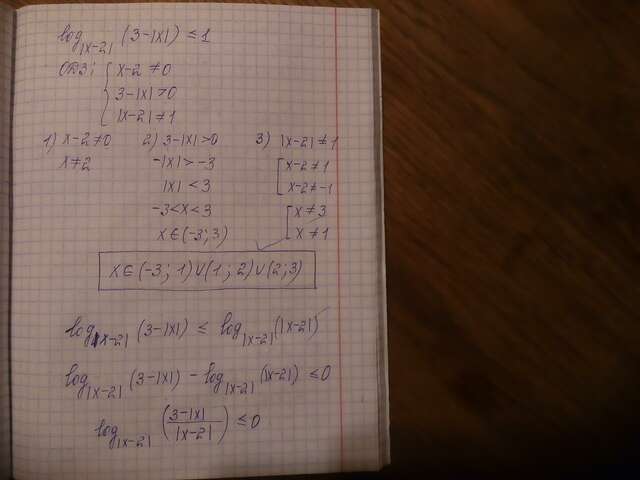 log_{|x-2|} (3-|x|) ≤ 1
ОДЗ: { x-2 ≠ 0
3-|x| > 0
|x-2| ≠ 1
1) x-2 ≠ 0 2) 3-|x| > 0 3) |x-2| ≠ 1
x ≠ 2 -|x| > -3 [ x-2 ≠ 1
|x| < 3 x-2 ≠ -1
-3 < x < 3 [ x ≠ 3
x ∈ (-3; 3) x ≠ 1
x ∈ (-3; 1) ∪ (1; 2) ∪ (2; 3)
log_{|x-2|} (3-|x|) ≤ log_{|x-2|} (|x-2|)
log_{|x-2|} (3-|x|) - log_{|x-2|} (|x-2|) ≤ 0
log_{|x-2|} (\frac{3-|x|}{|x-2|}) ≤ 0